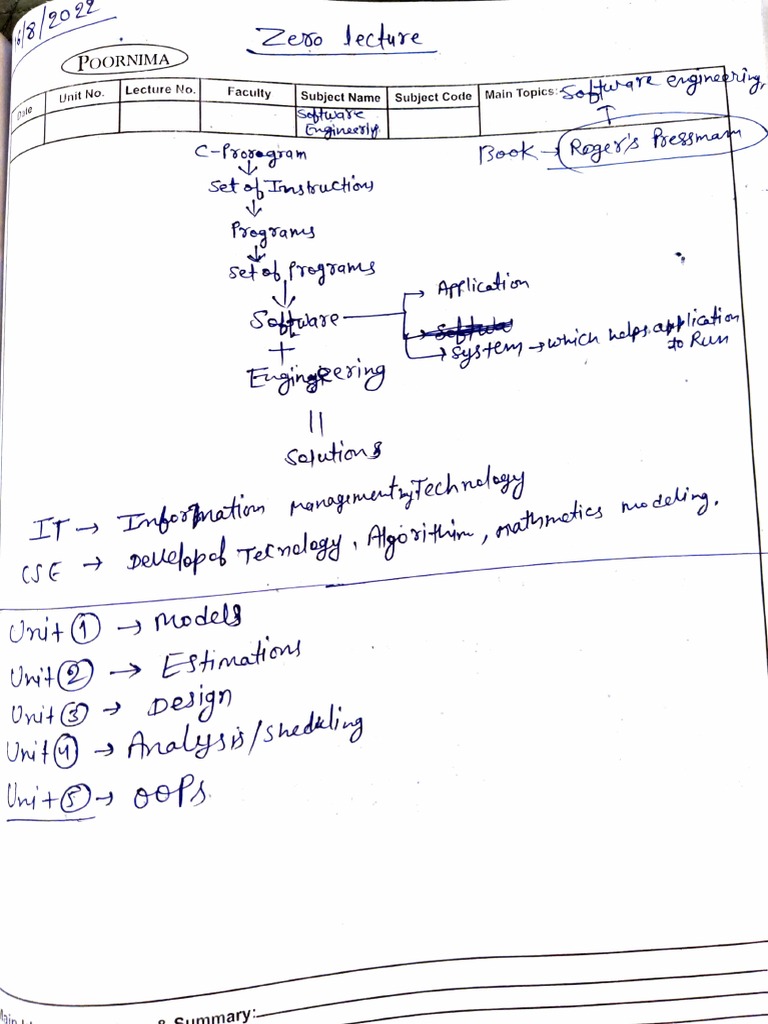 16/8/2022
Zero lecture
POORNIMA
Date
Unit No.
Lecture No.
Faculty
Subject Name
Subject Code
Main Topics: Software engineering,
Software
Engineerly
Book → Roger's Pressmam
C-Prorogram
↓
Set of Instructions
↓
Programs
↓
Set of Programs
↓
Software
→ Application
→ System → which helps application
to Run
+
Engineering
||
Solutions
IT → Information management by Technology
CSE → Develop of Tecnology, Algorithim, mathmetics modeling.
Unit ① → Models
Unit ② → Estimations
Unit ③ → Design
Unit ④ → Analysis/Sheduling
Unit ⑤ → OOPs
& Summary: